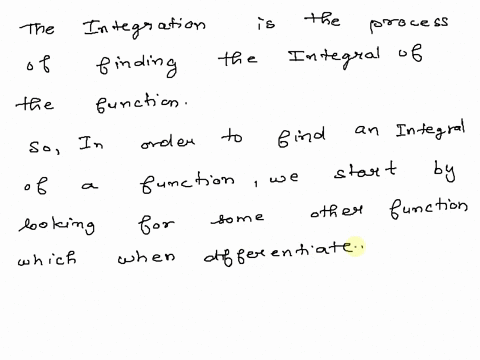 The Integration is the process
of finding the Integral of
the function.
So, In order to find an Integral
of a function, we start by
looking for some other function
which when differentiate..